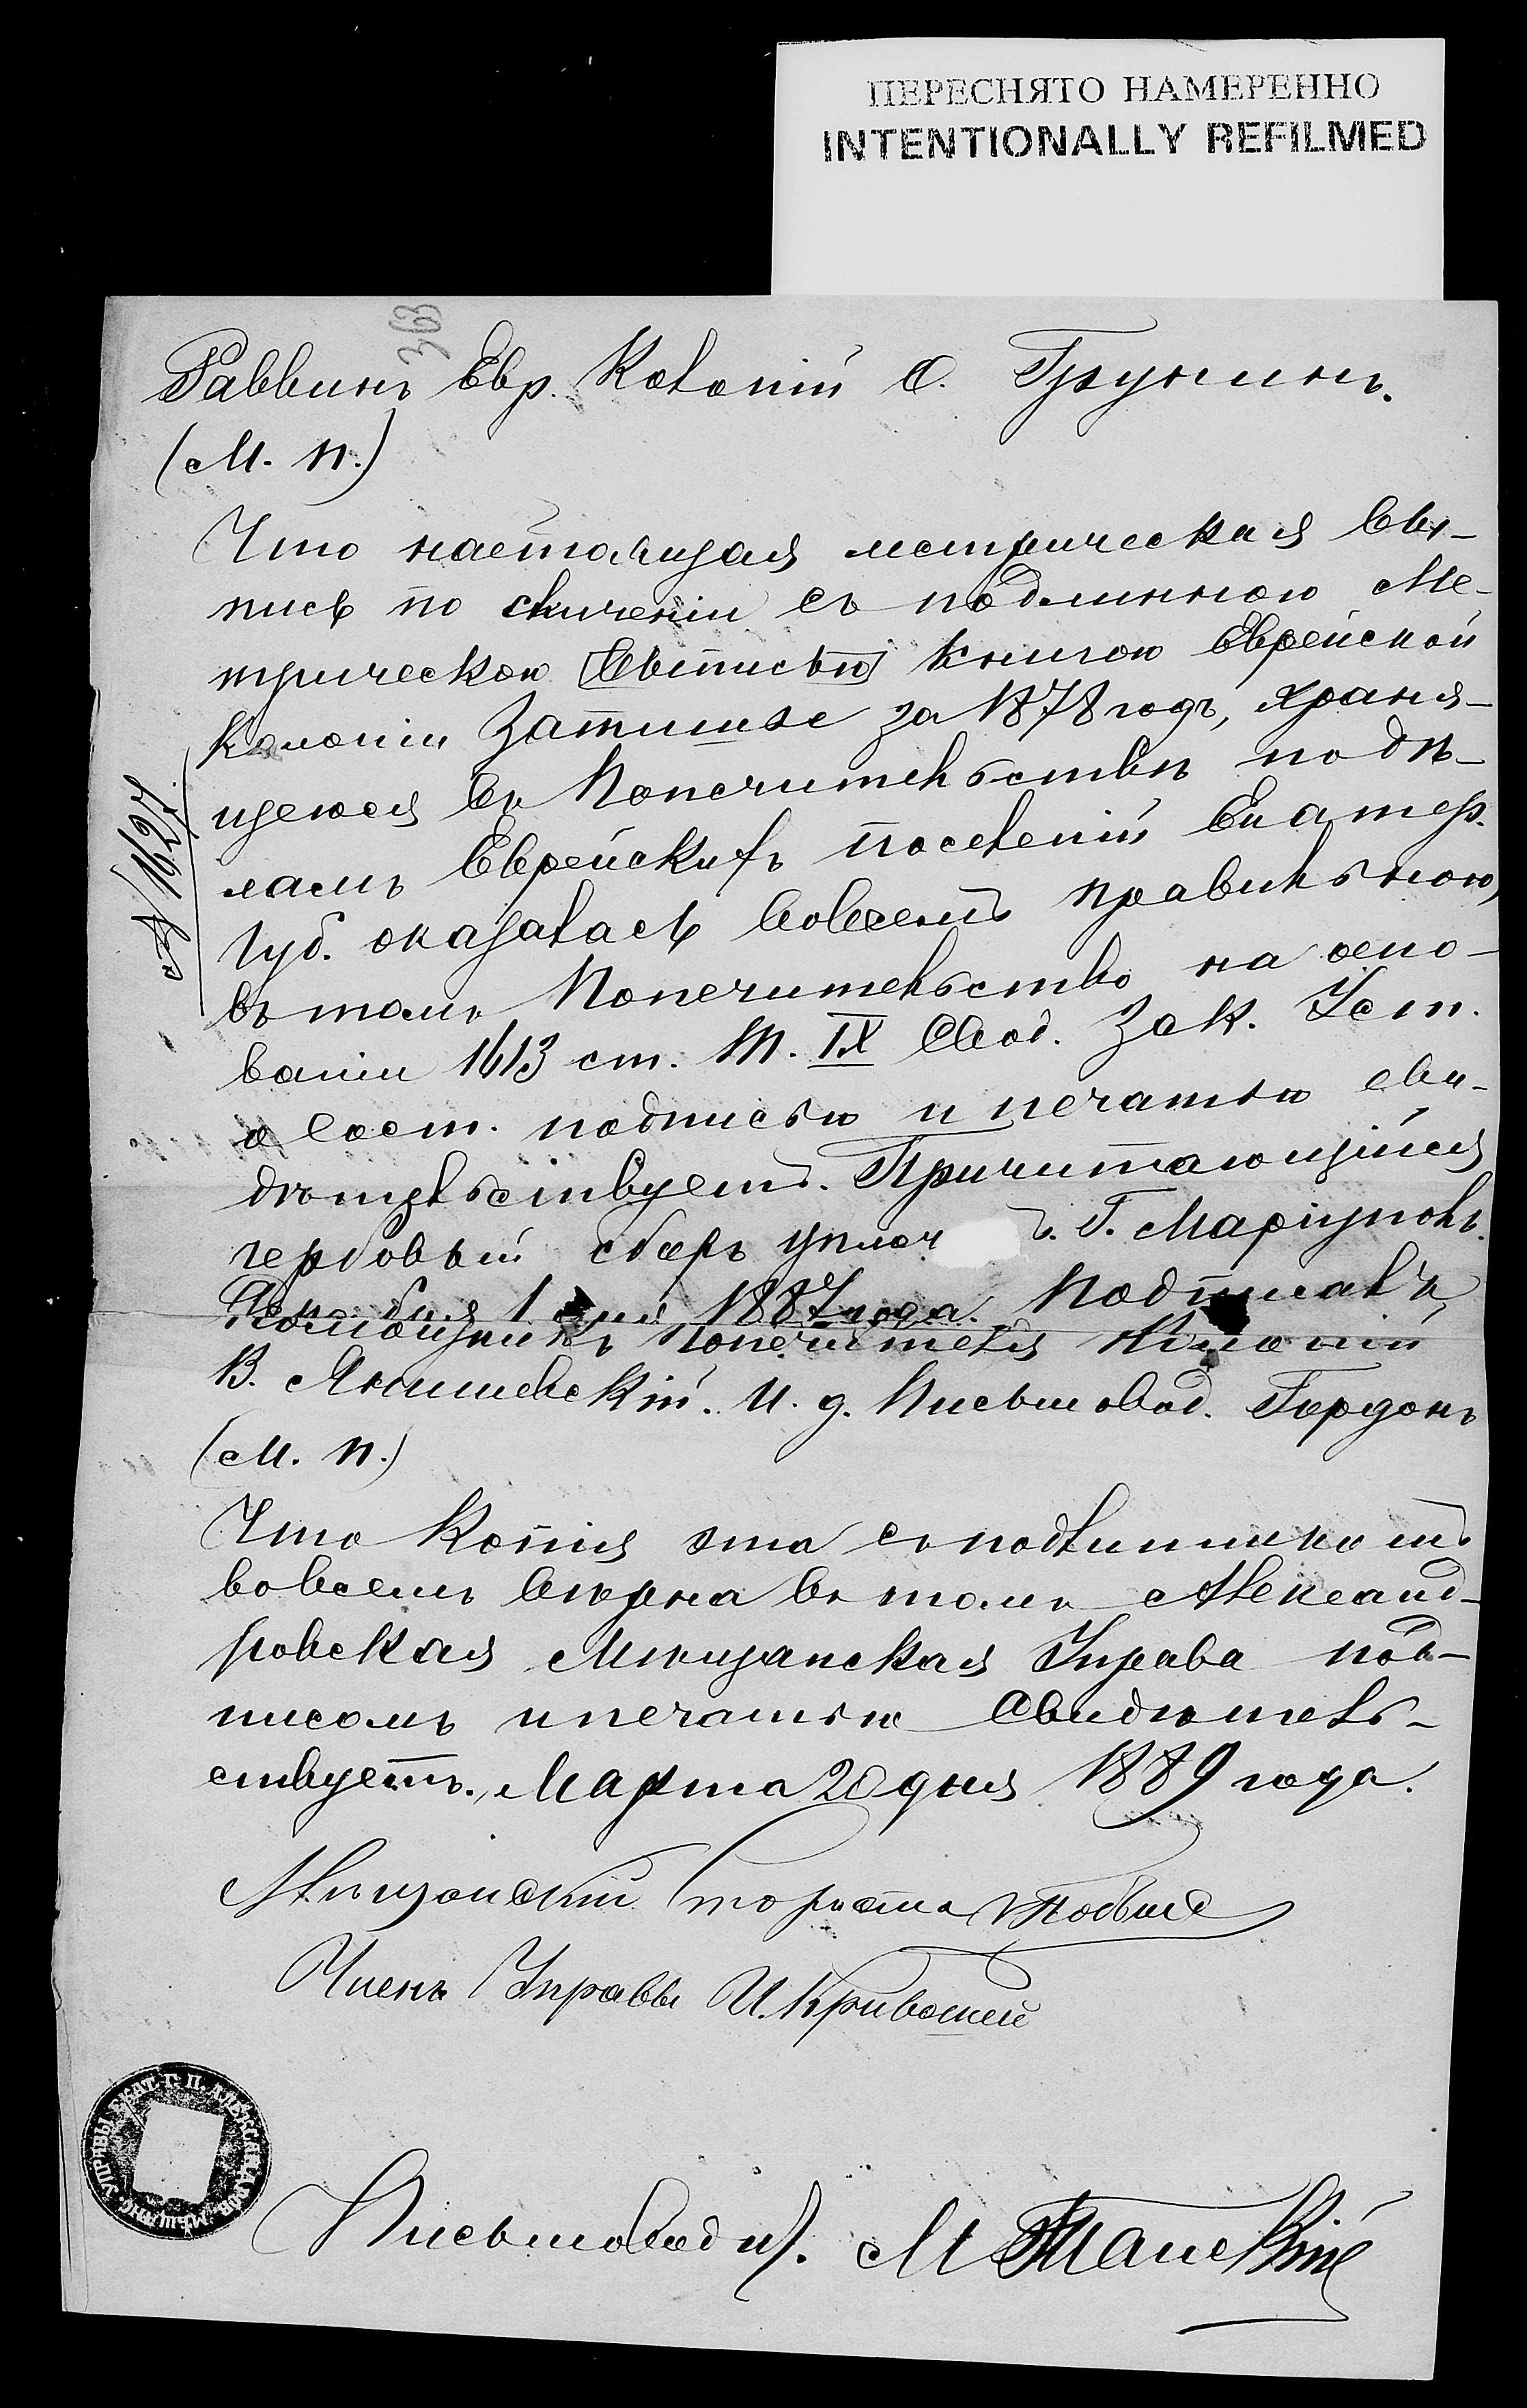 ПЕРЕСНЯТО НАМЕРЕННО
INTENTIONALLY REFILMED
363
Раввинъ Евр. Колоній С. Грунинъ.
(М. П.)
Что настоящая метрическая вы-
пись по сличеніи съ подлинною Ме-
трическою [выписью] книгою Еврейской
Колоніи Затишье за 1878 годъ, храня-
щеюся въ Попечительствѣ по дѣ-
ламъ Еврейскихъ поселеній Екатер.
Губ. оказалась вовсемъ правильною,
въ томъ Попечительство на осно-
ваніи 1613 ст. Т. IX Свод. Зак. Уст.
о Сост. подписью и печатью сви-
дѣтельствуетъ. Причитающійся
гербовый сборъ уплоч ъ. Г. Маріуполь.
1 дня 1887 года. Подписалъ
Помощникъ Попечителя Колоній
В. Якишевскій. И. д. Письмовод. Гордонъ
(М. П.)
№ 1627
Что Копія эта съ подлинникомъ
вовсемъ вѣрна въ томъ Александ-
ровская Мѣщанская Управа под-
писомъ и печатью Свидѣтель-
ствуетъ. Марта 20 дня 1889 года.
Мѣщанскій Староста
Членъ Управы И. Кривошей
УПРАВЫ ЕКАТ. Г. П. АЛЕКСАНДРОВ. МѢЩАНС.
Письмовод. М